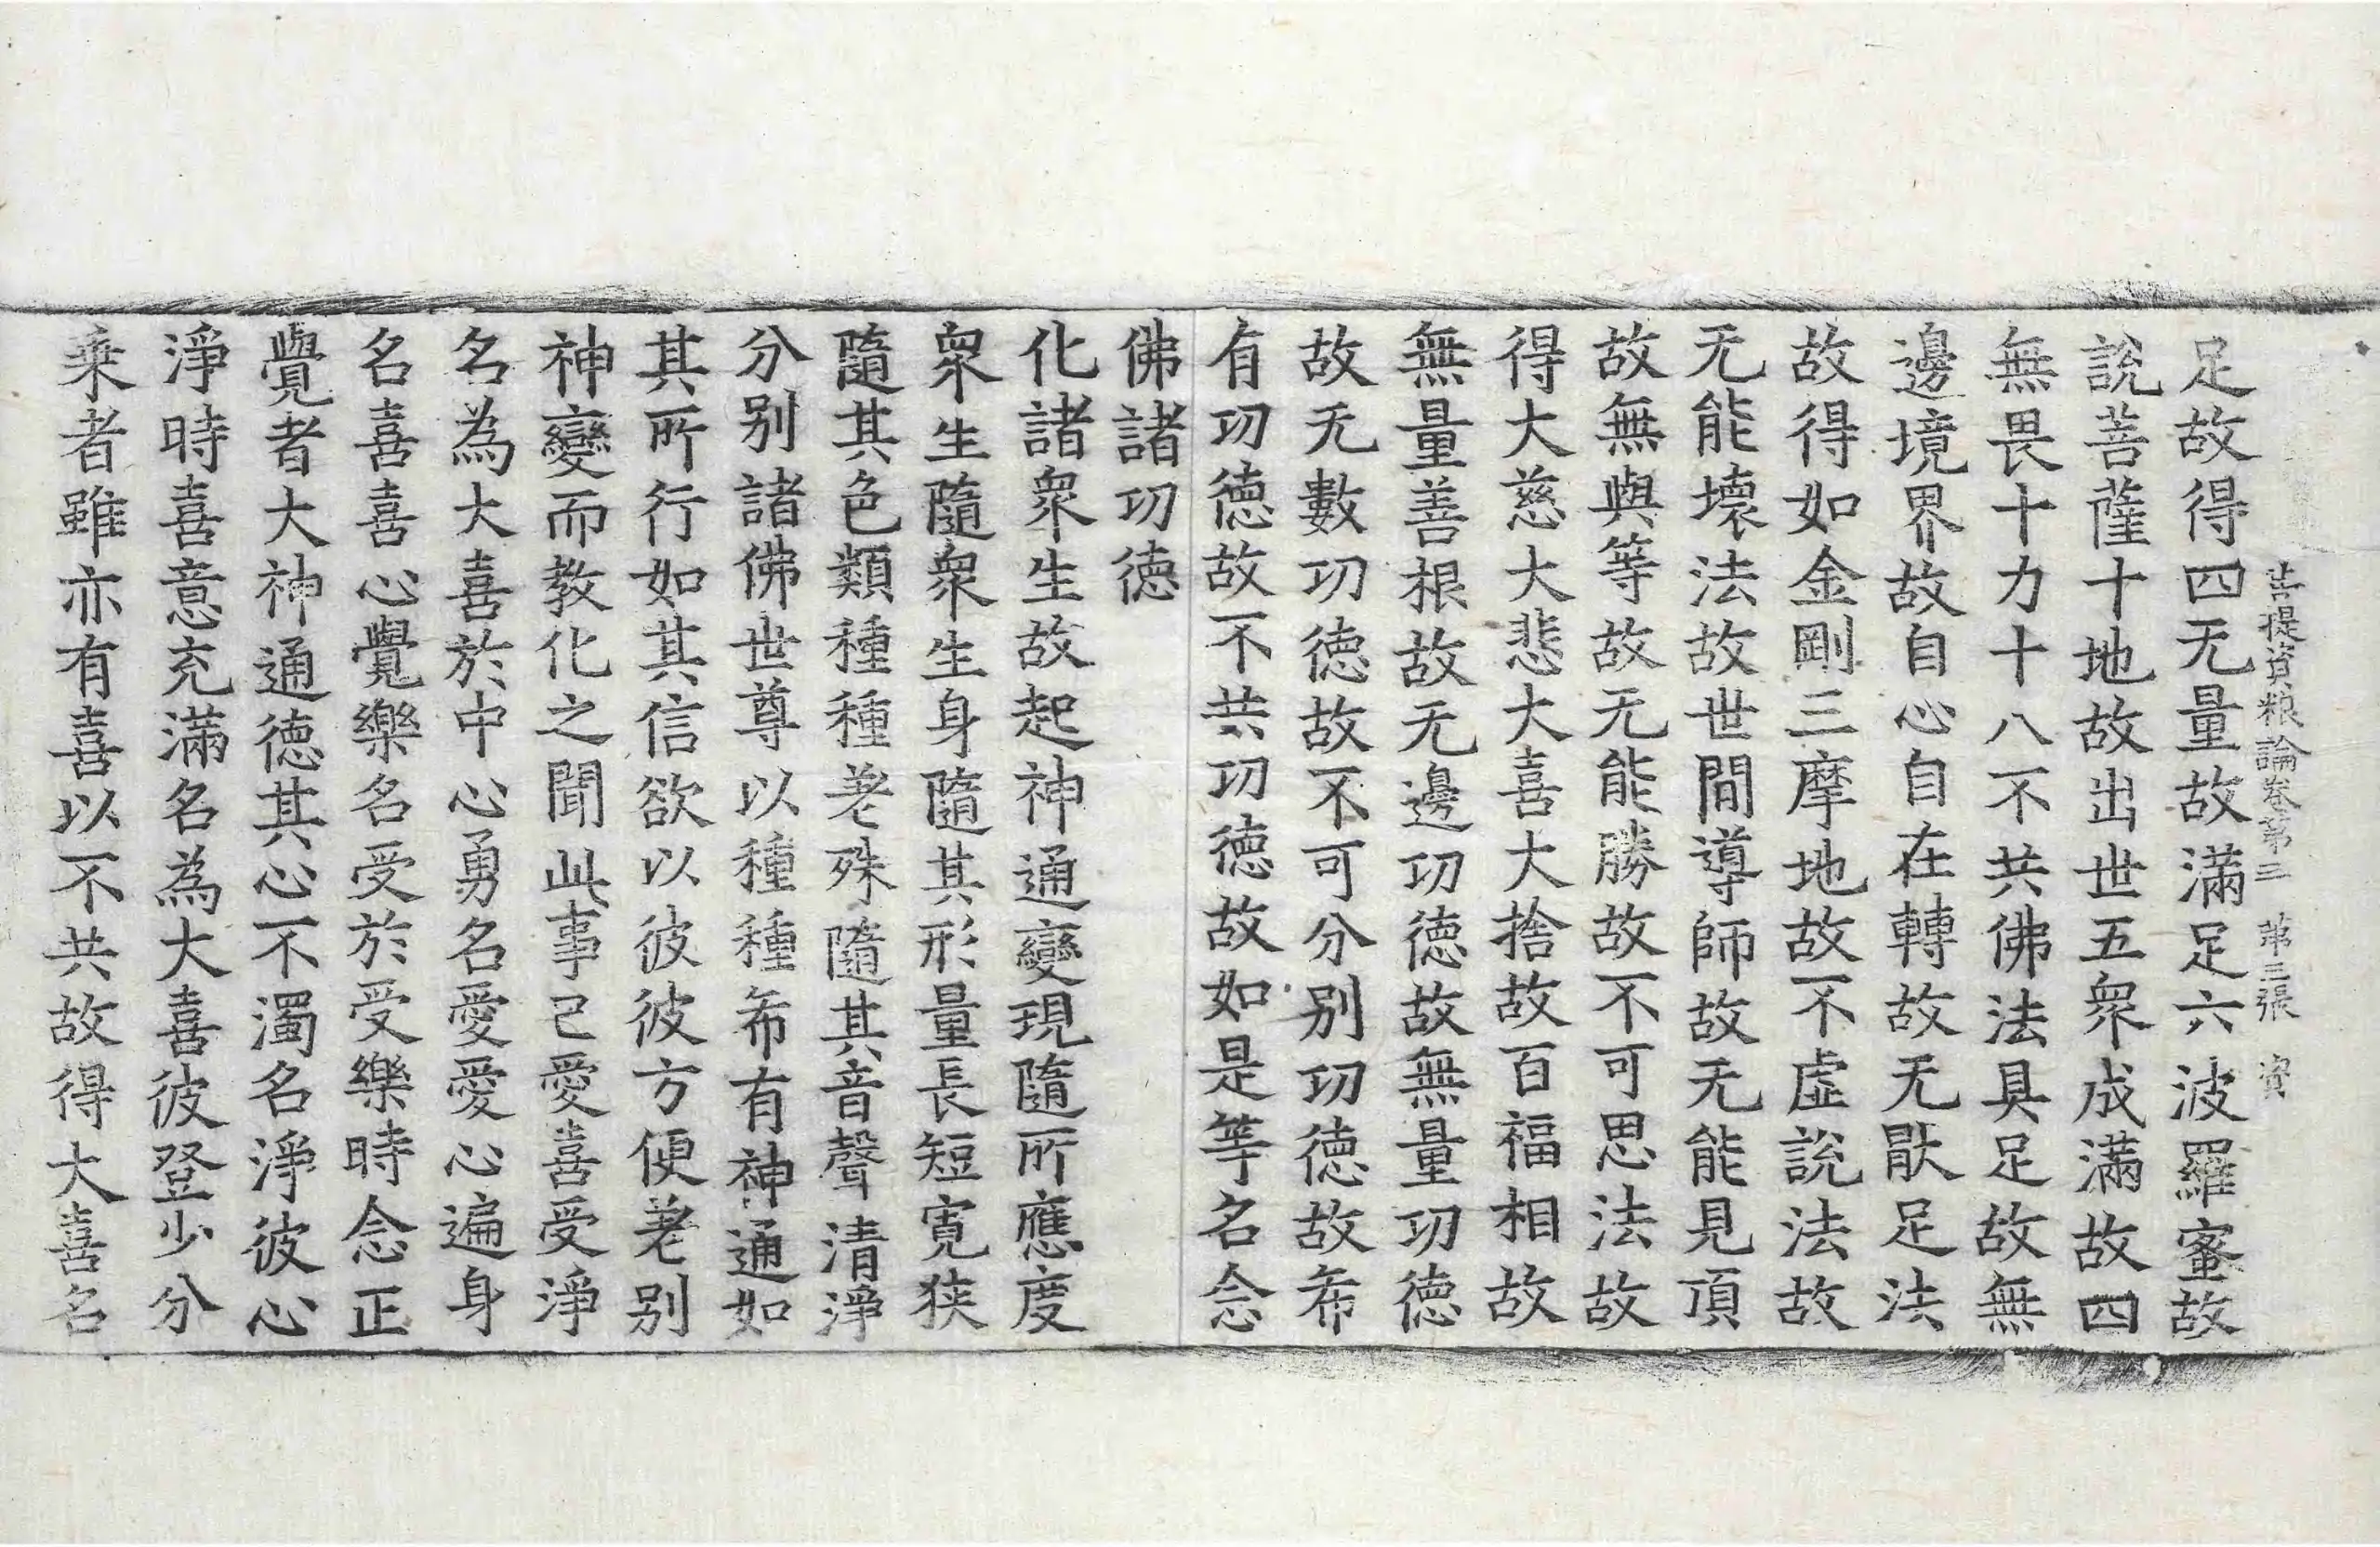 菩提資粮論卷第三 第三張 資
足故得四无量故滿足六波羅蜜故
說菩薩十地故出世五衆成滿故四
無畏十力十八不共佛法具足故無
邊境界故自心自在轉故无猒足法
故得如金剛三摩地故不虛說法故
无能壞法故世間導師故无能見頂
故無與等故无能勝故不可思法故
得大慈大悲大喜大捨故百福相故
無量善根故无邊功德故無量功德
故无數功德故不可分別功德故希
有功德故不共功德故如是等名念
佛諸功德
化諸衆生故起神通變現隨所應度
衆生隨衆生身隨其形量長短寬狹
隨其色類種種差殊隨其音聲清淨
分別諸佛世尊以種種希有神通如
其所行如其信欲以彼彼方便差別
神變而教化之聞此事已愛喜受淨
名為大喜於中心勇名愛愛心遍身
名喜喜心覺樂名受於受樂時念正
覺者大神通德其心不濁名淨彼心
淨時喜意充滿名為大喜彼登少分
乘者雖亦有喜以不共故得大喜名